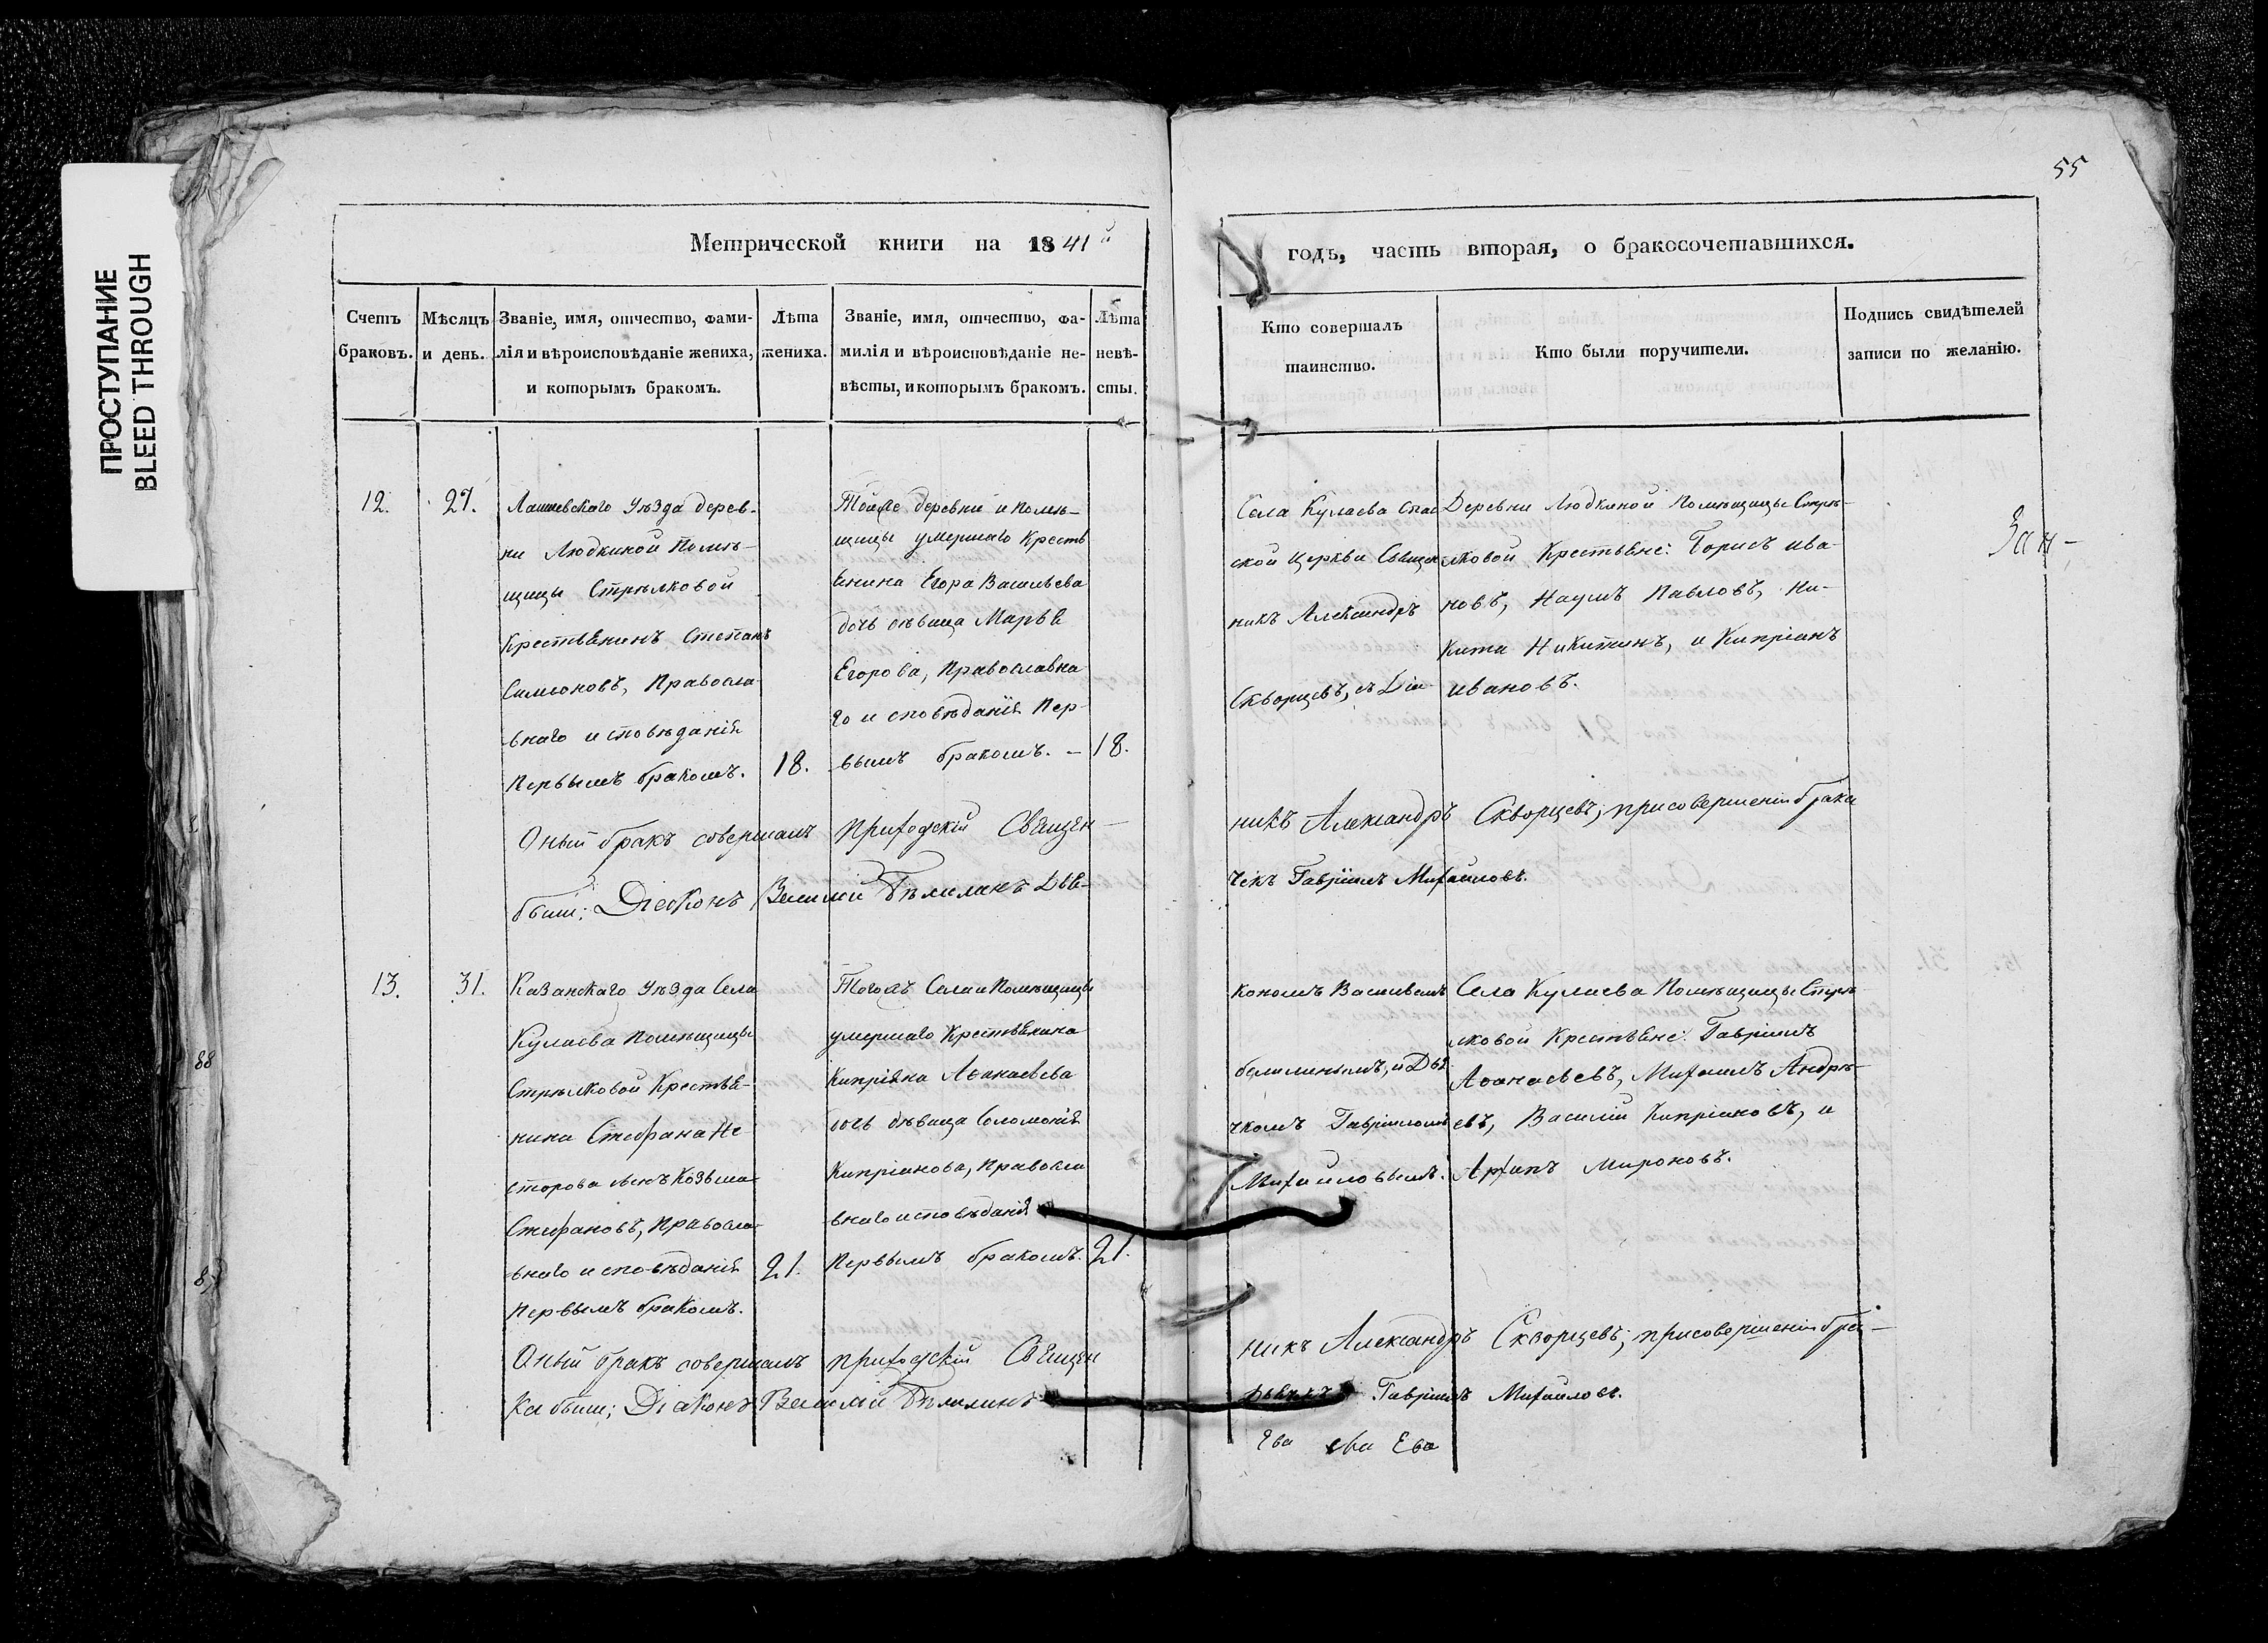 ПРОСТУПАНИЕ
BLEED THROUGH
55
Метрической книги на 1841й
годъ, часть вторая, о бракосочетавшихся.
Счетъ браковъ.
Мѣсяцъ и день.
Званіе, имя, отчество, фами-
лія и вѣроисповѣданіе жениха,
и которымъ бракомъ.
Лѣта жениха.
Званіе, имя, отчество, фа-
милія и вѣроисповѣданіе не-
вѣсты, и которымъ бракомъ.
Лѣта невѣ-
сты.
Кто совершалъ
таинство.
Кто были поручители.
Подпись свидѣтелей
записи по желанію.
12.
27.
Лаишевскаго Уѣзда дерев-
ни Людкиной Помѣ-
щицы Стрѣлковой
Крестьянинъ Степанъ
Симеоновъ, Правосла-
внаго исповѣданія
Первымъ бракомъ.
18.
Тойже деревни и помѣ-
щицы умершаго Кресть
янина Егора Васильева
дочь дѣвица Марья
Егорова, Православна
го исповѣданія Пер-
вымъ бракомъ. –
18.
Села Кулаева Спас
ской Церкви Священ
никъ Александръ
Скворцевъ, съ Діа
Деревни Людкиной Помѣщицы Стрѣ-
лковой Крестьяне: Борисъ Ива-
новъ, Наумъ Павловъ, Ни-
кита Никитинъ, и Кипріанъ
Ивановъ.
Зан-
Оный бракъ совершалъ приходскій Священ-
никъ Александръ Скворцевъ; присовершеніи брака
были; Діаконъ Василій Бѣлилинъ Дья-
чекъ Гавріилъ Михайловъ.
13.
31.
Казанскаго Уѣзда Села
Кулаева Помѣщицы
Стрѣлковой Крестья-
нина Стефана Не
сторова сынъ Козьма
Стефановъ, Правосла-
внаго исповѣданія
Первымъ бракомъ.
21.
Тогожъ Села и Помѣщицы
умершаго Крестьянина
Кипріяна Аѳанасьева
дочь дѣвица Соломонія
Кипріанова, Правосла
внаго исповѣданія
Первымъ бракомъ.
21.
кономъ Васильемъ
белилинымъ, и Дья
чкомъ Гавріиломъ
Михайловымъ.
Села Кулаева Помѣщицы Стрѣ
лковой Крестьяне: Гавріилъ
Аѳанасьевъ, Михаилъ Андрѣ-
евъ, Василій Кипріановъ, и
Архипъ Мироновъ.
Оный бракъ совершалъ приходскій Священ
никъ Александръ Скворцевъ; присовершеніи бра-
ка были; Діаконъ Василій Бѣлилинъ
Дьячекъ Гавріилъ Михайловъ.
Ева ева Ева
88